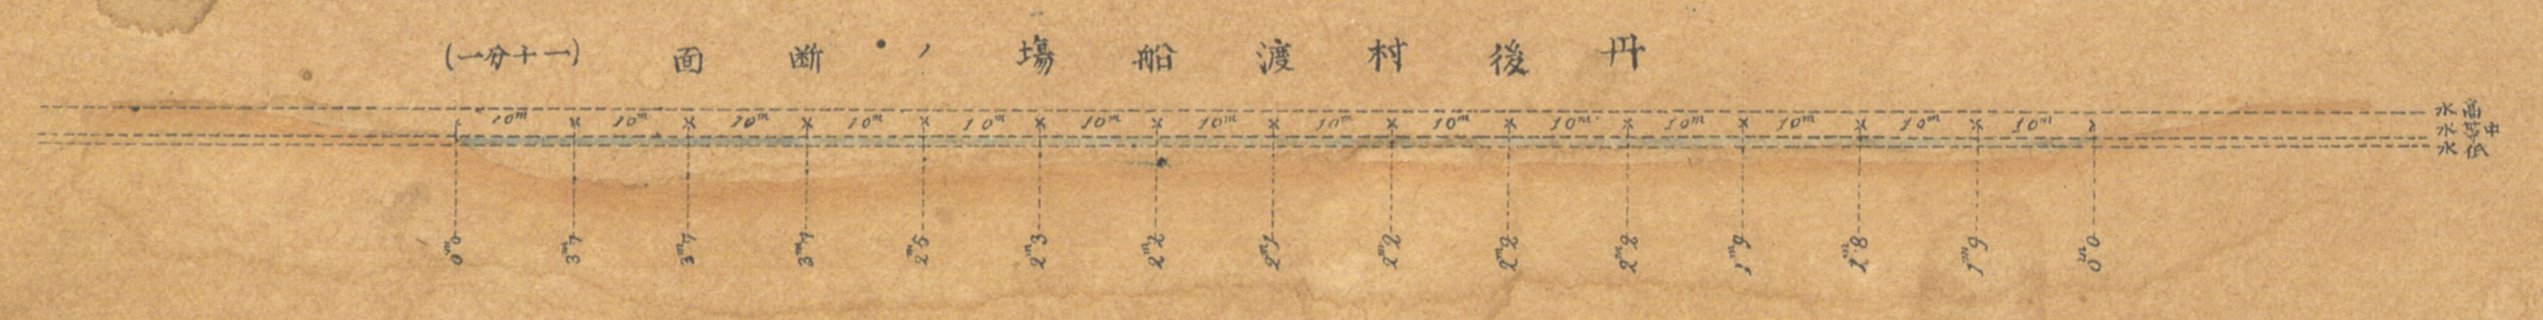 丹後村渡船場ノ断面 (一分十一)
10m 10m 10m 10m 10m 10m 10m 10m 10m 10m 10m 10m 10m 10m
高水
中等水
低水
0m.0 2m.3 2m.2 2m.1 2m.2 2m.2 2m.2 1m.9 1m.8 1m.9 0m.0